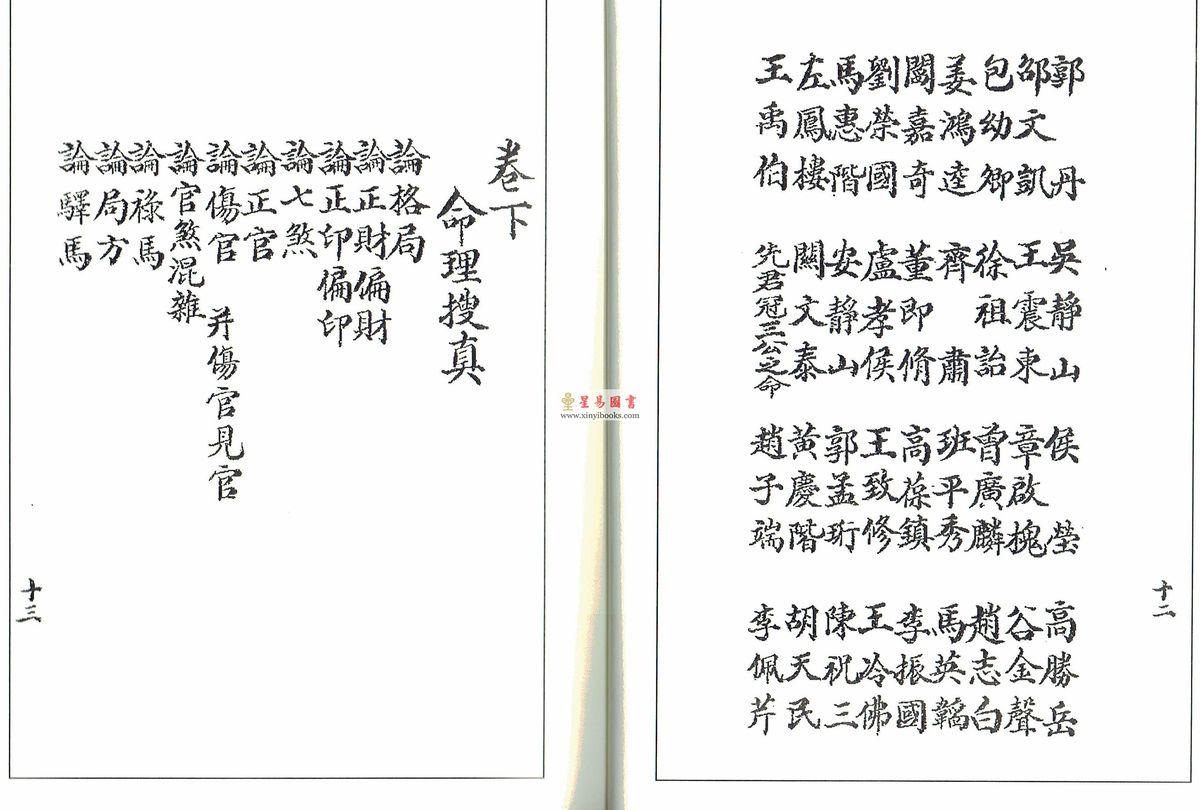 郭丹 吳靜山 侯瑩 高勝岳
邵文凱 王震東 章啟槐 谷金聲
包幼卿 徐祖詒 曾廣麟 趙志白
姜鴻逵 齊肅 班平秀 馬英韜
闞嘉奇 董即脩 高葆鎮 李振國
劉榮國 盧孝侯 王致修 王冷佛
馬惠階 安靜山 郭孟珩 陳祝三
左鳳樓 關文泰 黃慶階 胡天民
王禹伯 先君冠三公之命 趙子端 李佩芹
十二
卷下
命理搜真
論格局
論正財偏財
論正印偏印
論七煞
論正官
論傷官 并傷官見官
論官煞混雜
論祿馬
論局方
論驛馬
十三
星易圖書
www.xinyibooks.com